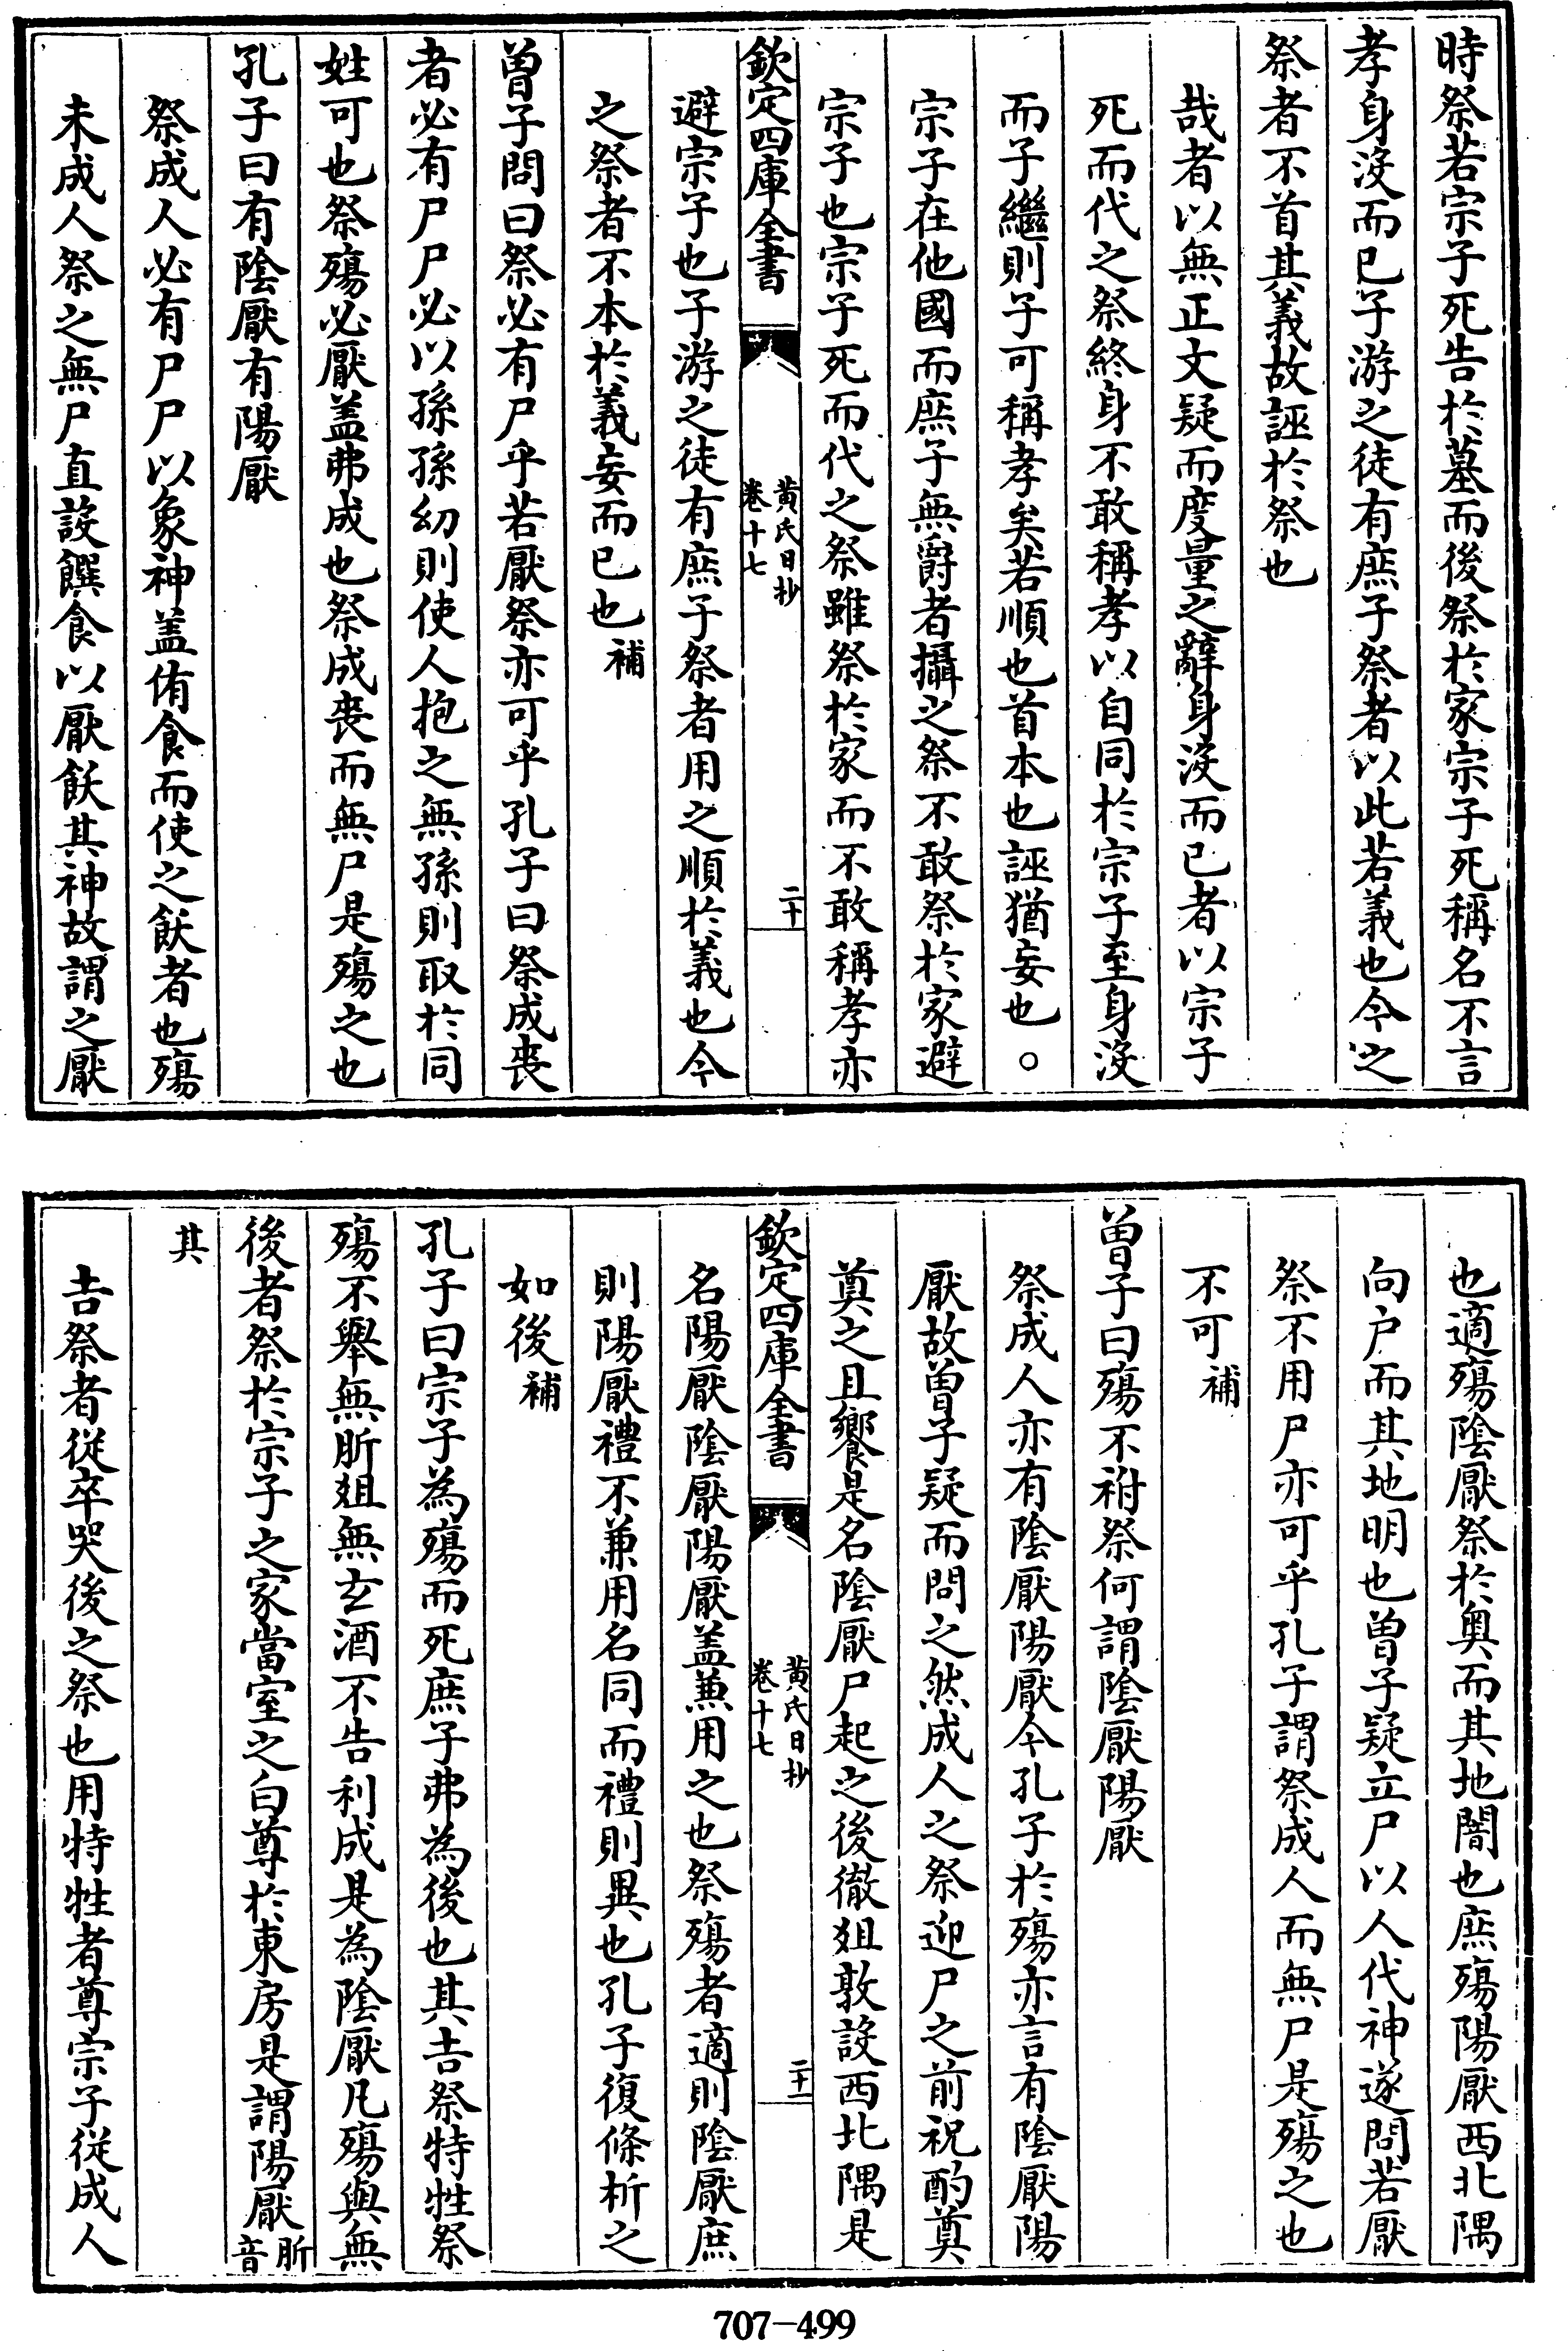 時祭若宗子死告於墓而後祭於家宗子死稱名不言
孝身沒而已子游之徒有庶子祭者以此若義也今之
祭者不首其義故誣於祭也
哉者以無正文疑而度量之辭身沒而已者以宗子
死而代之祭終身不敢稱孝以自同於宗子至身沒
而子繼則子可稱孝矣若順也首本也誣猶妄也○
宗子在他國而庶子無爵者攝之祭不敢祭於家避
宗子也宗子死而代之祭雖祭於家而不敢稱孝亦
欽定四庫全書
黃氏日抄
卷十七
二十
避宗子也子游之徒有庶子祭者用之順於義也今
之祭者不本於義妄而已也補
曾子問曰祭必有尸乎若厭祭亦可乎孔子曰祭成喪
者必有尸尸必以孫孫幼則使人抱之無孫則取於同
姓可也祭殤必厭盖弗成也祭成喪而無尸是殤之也
孔子曰有陰厭有陽厭
祭成人必有尸尸以象神盖侑食而使之飫者也殤
未成人祭之無尸直設饌食以厭飫其神故謂之厭
也適殤陰厭祭於奧而其地闇也庶殤陽厭西北隅
向户而其地明也曾子疑立尸以人代神遂問若厭
祭不用尸亦可乎孔子謂祭成人而無尸是殤之也
不可補
曾子曰殤不祔祭何謂陰厭陽厭
祭成人亦有陰厭陽厭今孔子於殤亦言有陰厭陽
厭故曾子疑而問之然成人之祭迎尸之前祝酌奠
奠之且饗是名陰厭尸起之後徹俎敦設西北隅是
欽定四庫全書
黃氏日抄
卷十七
二十一
名陽厭陰厭陽厭盖兼用之也祭殤者適則陰厭庶
則陽厭禮不兼用名同而禮則異也孔子復條析之
如後補
孔子曰宗子為殤而死庶子弗為後也其吉祭特牲祭
殤不舉無肵俎無玄酒不告利成是為陰厭凡殤與無
後者祭於宗子之家當室之白尊於東房是謂陽厭肵音
其
吉祭者從卒哭後之祭也用特牲者尊宗子從成人
707-499